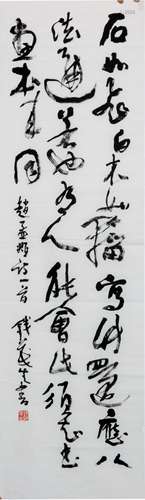 石如飛白木如籀寫竹還應八
法通若也有人能會此須知書
畫本来同
趙孟頫詩一首 錢茂生書